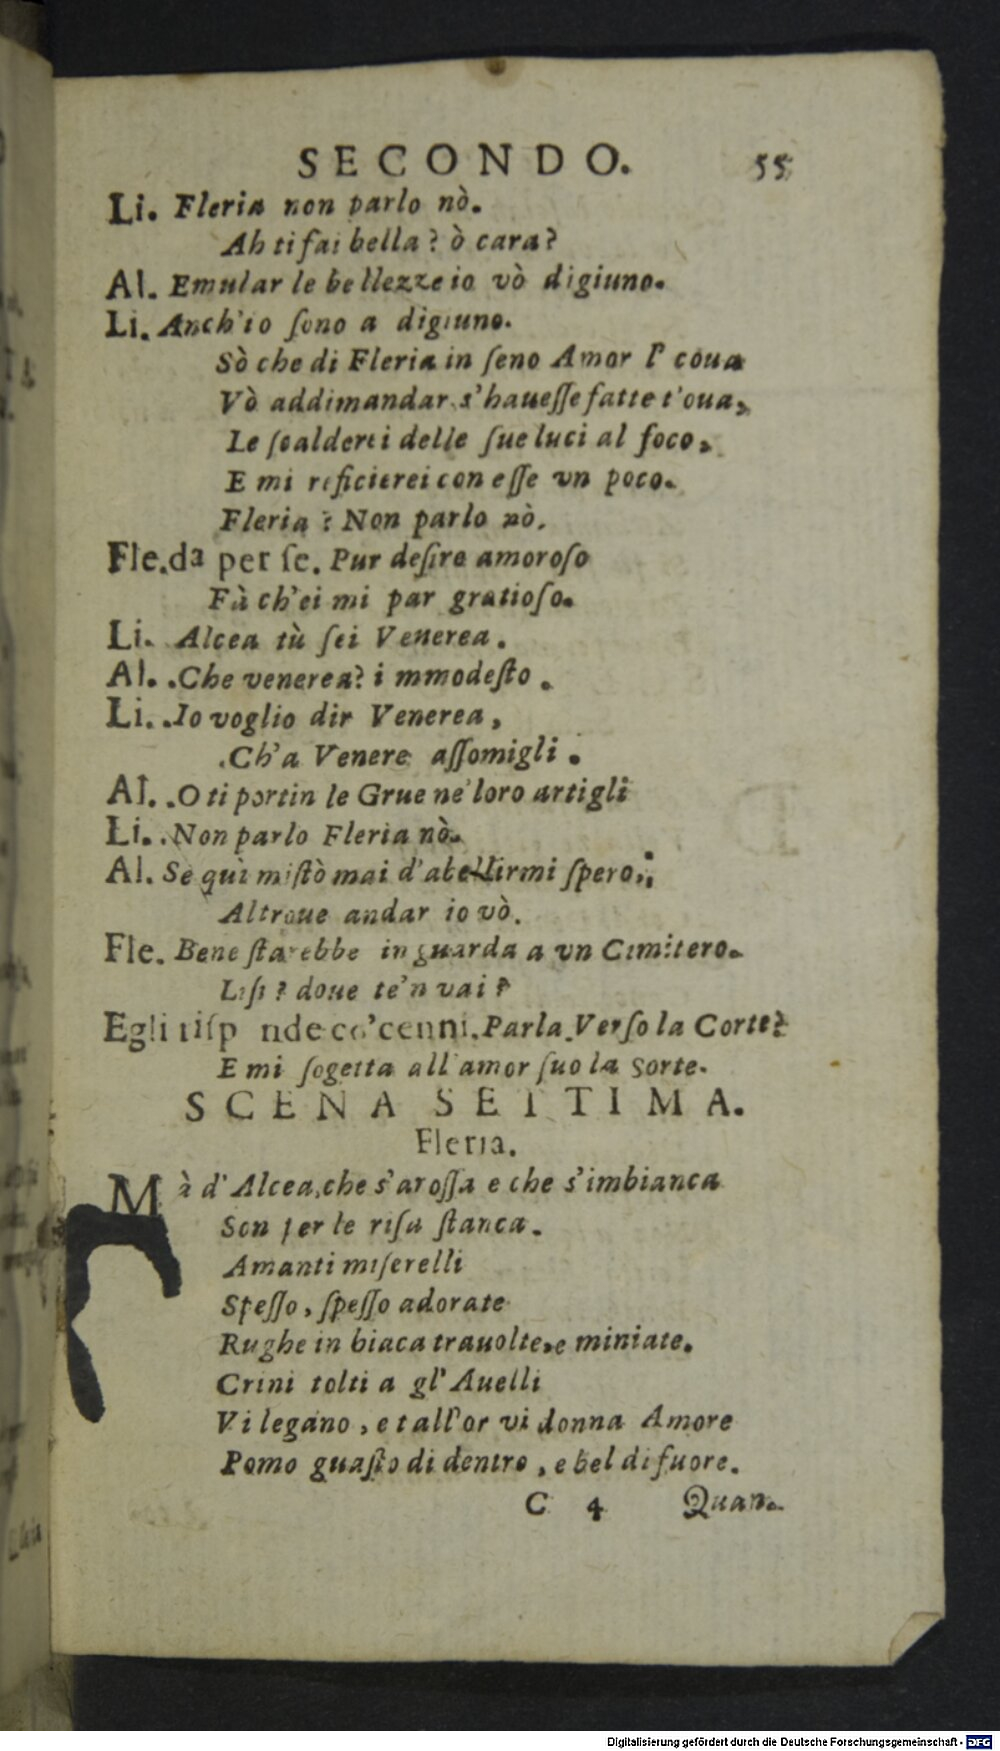 SECONDO. 55
Li. Fleria non parlo nò.
Ah ti fai bella? ò cara?
Al. Emular le bellezze io vò digiuno.
Li. Anch'io ſono a digiuno.
Sò che di Fleria in ſeno Amor l' coua
Vò addimandar s'haueſſe fatte t'oua,
Le ſcalderei delle ſue luci al foco,
E mi reficierei con eſſe vn poco.
Fleria? Non parlo nò.
Fle. da per ſe. Pur deſire amoroſo
Fà ch'ei mi par gratioſo.
Li. Alcea tù ſei Venerea.
Al. Che venerea? immodeſto.
Li. Io voglio dir Venerea,
Ch'a Venere aſſomigli.
Al. O ti portin le Grue ne' loro artigli
Li. Non parlo Fleria nò.
Al. Se quì mi ſtò mai d'abellirmi ſpero,
Altroue andar io vò.
Fle. Bene ſtarebbe in guarda a vn Cimitero.
Liſi? doue te'n vai?
Egli riſp nde co'cenni. Parla. Verſo la Corte?
E mi ſogetta all'amor ſuo la Sorte.
SCENA SETTIMA.
Fleria.
Mà d'Alcea, che s'aroſſa e che s'imbianca
Son per le riſa ſtanca.
Amanti miſerelli
Speſſo, ſpeſſo adorate
Rughe in biaca trauolte, e miniate.
Crini tolti a gl'Auelli
Vi legano, e tall'or vi donna Amore
Pomo guaſto di dentro, e bel di fuore.
C 4 Quan-
Digitalisierung gefördert durch die Deutsche Forschungsgemeinschaft - DFG